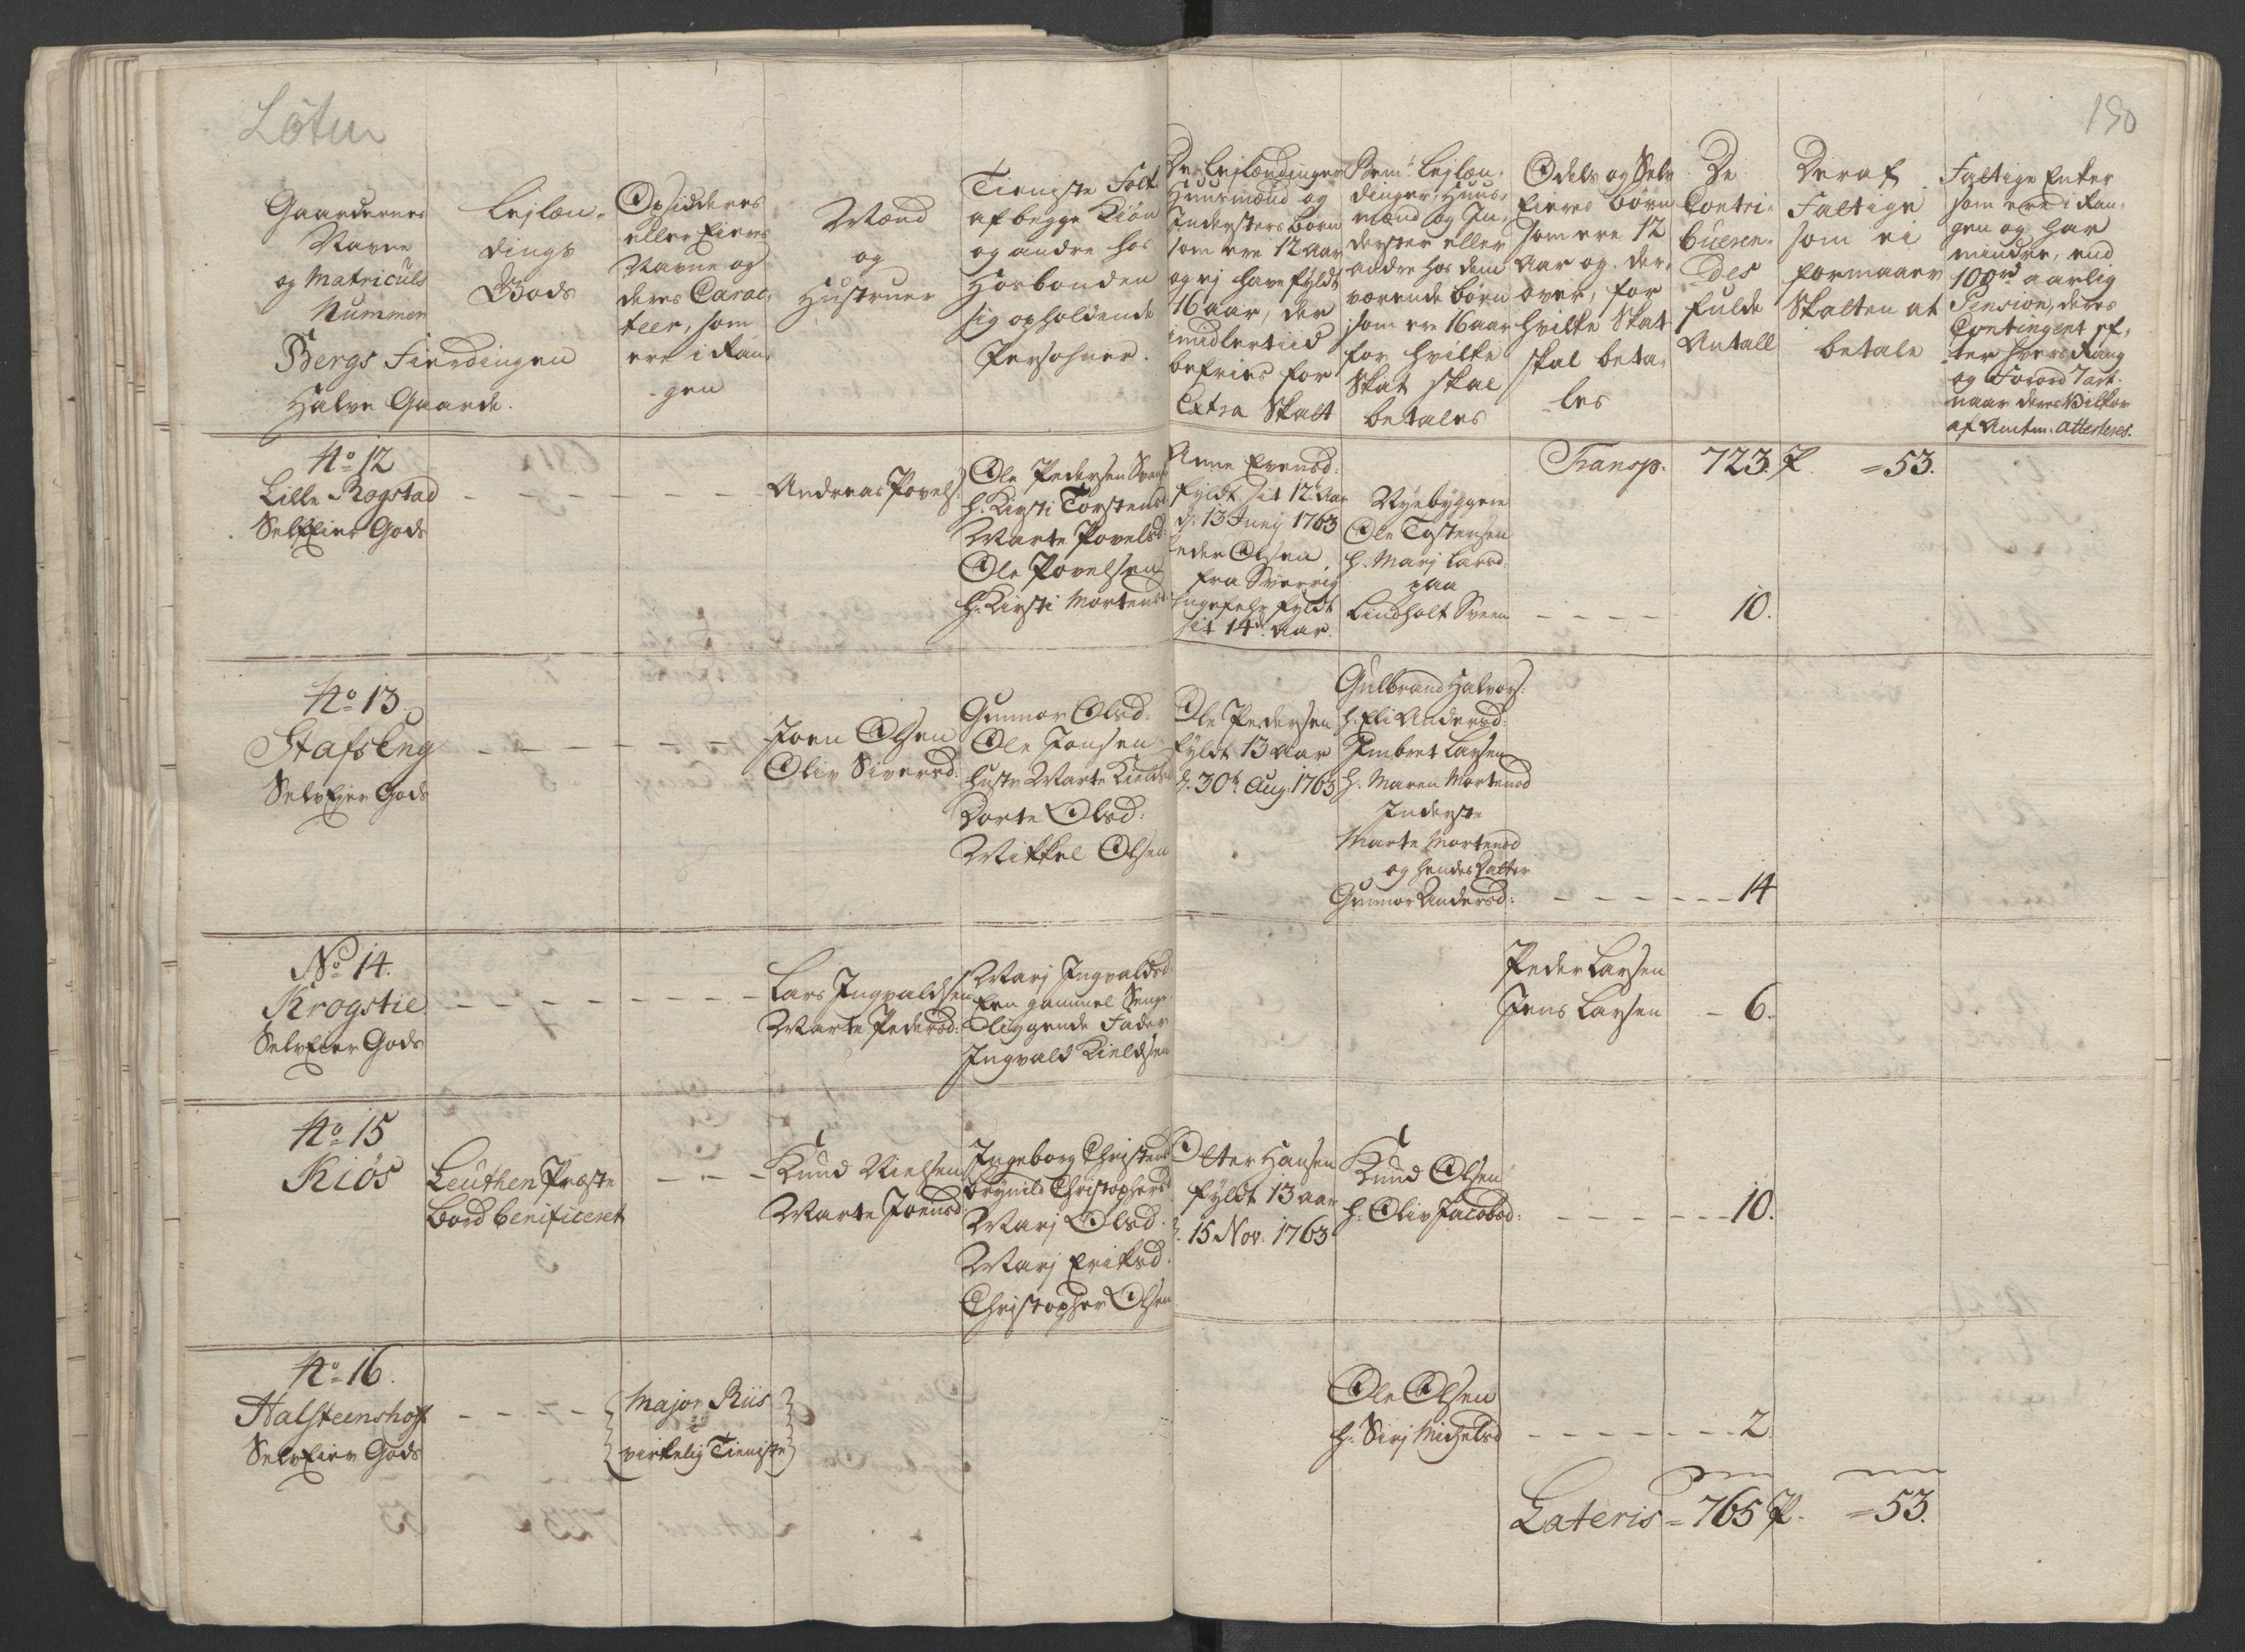 Löten
150
Gaardernes
Navne
og Matriculs
Nummer
Bergs Fierdingen
Halve Gaarde.
Lejlæn-
dings
Gods
Opsidderes
eller Eieres
Navne og
deres Carac-
teer, som
ere i Ran-
gen
Mænd
og
Hustruer
Tieniste Folk
af begge Kiön
og andre hos
Hosbonden
sig opholdende
Persohner.
De Lejlændinger
Huusmænd og
Indersters börn
som ere 12 aar
og ej have fyldt
16 aar, der
imidlertiid
befries for
Extra Skatt
Bem.te Lejlæn-
dinger, Huus-
mænd og In-
derster eller
andre hos dem
værende börn
som ere 16 aar
for hvilke
Skat skal
betales
Odels og Selv
Eieres börn
som ere 12
Aar og der-
over, for
hvilke Skat
skal beta-
les
De
Contri-
bueren-
des
fulde
Antall
Deraf
Fattige
som ei
formaaer
Skatten at
betale
Fattige Enker
som ere i Ran-
gen og har
mindre, end
100 rd aarlig
Pension, deres
Contingent ef-
ter hvers Rang
og Forord 7 art.
naar deres Vilkor
af Amtm: atteteres.
No 12
Lille Rogstad
SelvEier Gods
Andreas Povels:
Ole Pedersen Sveen
h. Kirsti Torstensd
Marte Povelsd:
Ole Povelsen
h. Kirsti Mortensd
Anne Evensd:
fyldt sit 12te Aar
d. 13 Junij 1763
Peder Olsen
fra Sverrig
Ungefehr fyldt
sit 14de aar.
Nyebyggere
Ole Tostensen
h. Marj Larsd:
paa
Lindholt Sveen
Transp. 723. P. = 53.
10.
No 13
Stafs Eng
SelvEjer Gods
Joen Olsen
Oliv Siversd:
Gunnor Olsd:
Ole Jonsen
hustr Marte Kieldsd
Dorte Olsd:
Mikkel Olsen
Ole Pedersen
fyldt 13 aar
d. 30te Aug: 1763
Gulbrand Halvors:
h. Eli Andersd:
Embret Larsen
h. Maren Mortensd
Inderste
Marte Mortensd
og hendes Datter
Gunnor Andersd:
14
No 14.
Krogstie
SelvEier Gods
Lars Ingvaldsen
Marte Pedersd:
Marj Ingvaldsd
Een gammel Senge
liggende Fader
Ingvald Kieldsen
Peder Larsen
Jens Larsen
6.
No 15
Kiös
Leuthen Præste
bord benificeret
Knud Nielsen
Marte Joensd
Ingeborg Christensd
Brynild Christophersd
Marj Olsd.
Marj Eriksd.
Christopher Olsen
Otter Hansen
fyldt 13 aar
d. 15 Nov. 1763
Knud Olsen
h. Oliv Jacobsd:
10.
No 16.
Halsteenshof
SelvEier Gods
Major Riis
i
virkelig Tieniste
Ole Olsen
h. Sirj Michelsd
2.
Lateris = 765 P. = 53.